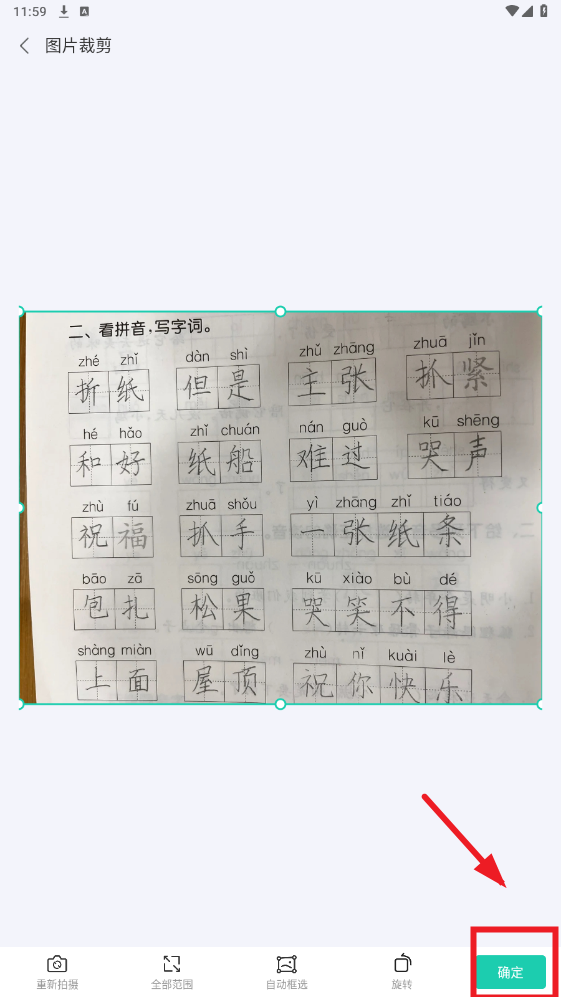 11:59
图片裁剪
二、看拼音,写字词。
zhé zhǐ dàn shì zhǔ zhāng zhuā jǐn
折纸 但是 主张 抓紧
hé hǎo zhǐ chuán nán guò kū shēng
和好 纸船 难过 哭声
zhù fú zhuā shǒu yì zhāng zhǐ tiáo
祝福 抓手 一张纸条
bāo zā sōng guǒ kū xiào bù dé
包扎 松果 哭笑不得
shàng miàn wū dǐng zhù nǐ kuài lè
上面 屋顶 祝你快乐
重新拍摄 全部范围 自动框选 旋转 确定